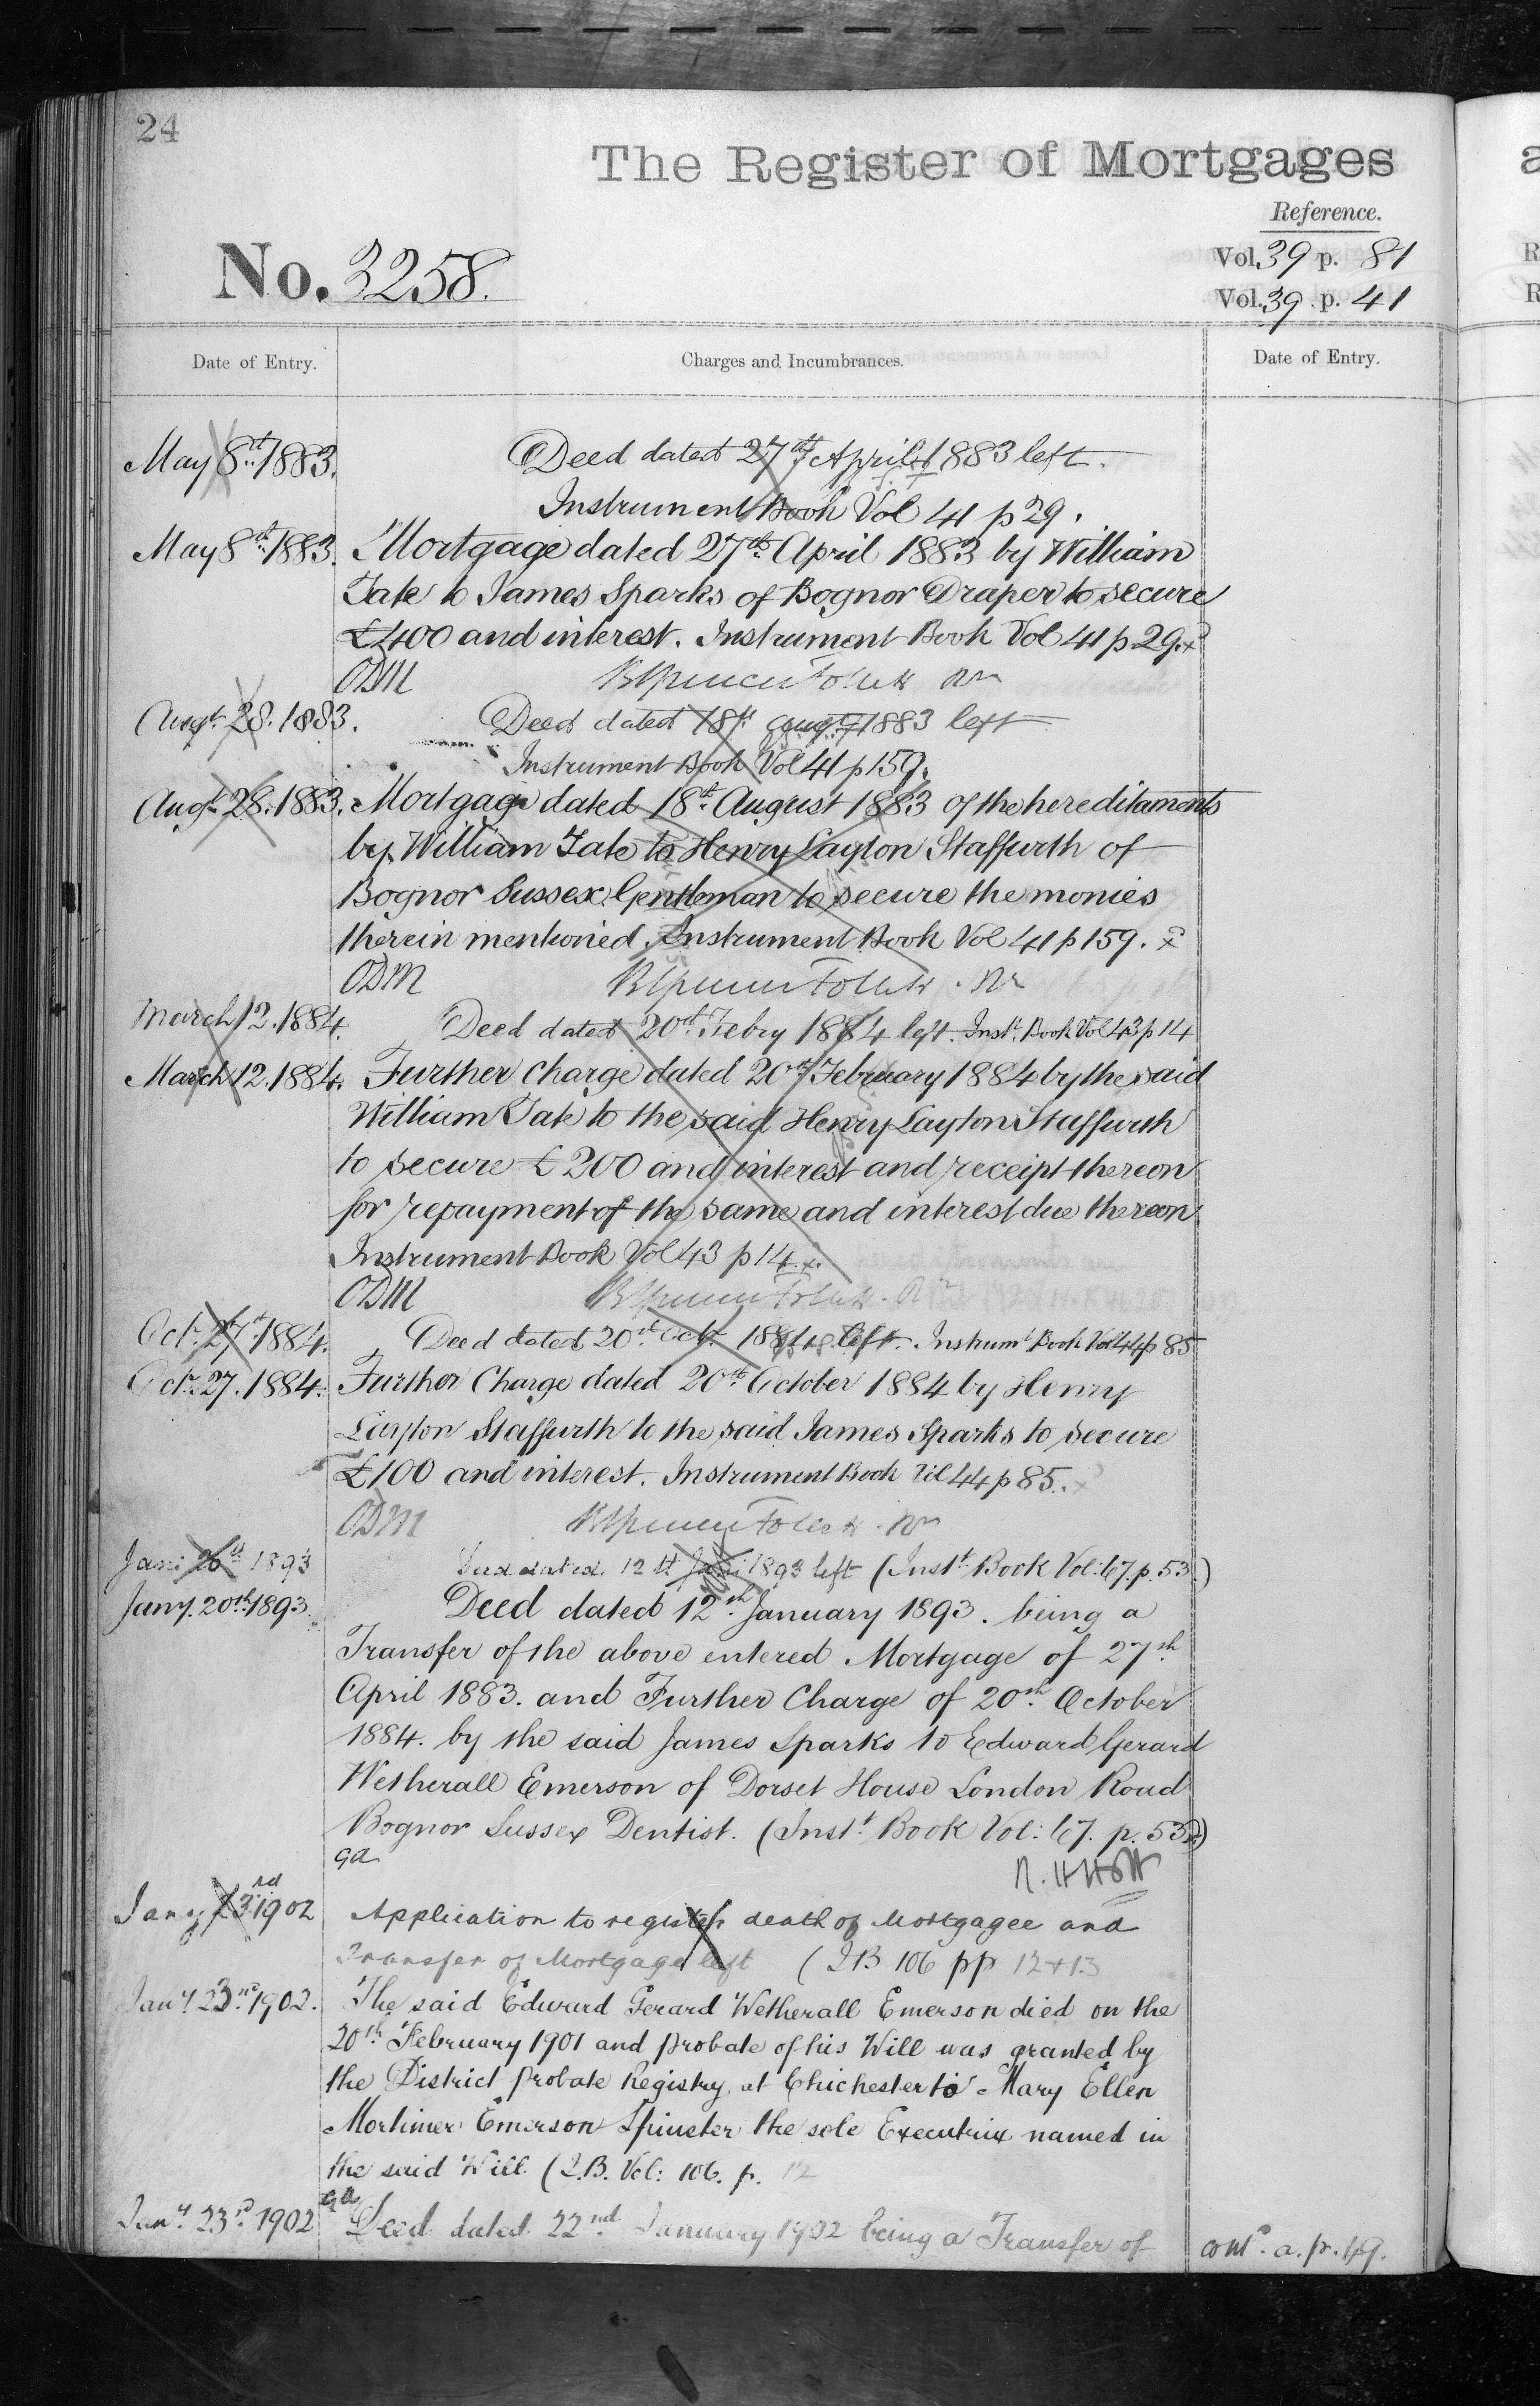 24
The Register of Mortgages
Reference.
No. 3258.
Vol. 39 p. 81
Vol. 39 p. 41
Date of Entry.
Charges and Incumbrances.
Date of Entry.
May 8th 1883. Deed dated 27th April 1883 left.
Instrument Book Vol 41 p 29.
May 8th 1883. Mortgage dated 27th April 1883 by William
Tate to James Sparks of Bognor Draper to secure
£400 and interest. Instrument Book Vol 41 p 29.
ODM
Augt. 28. 1883. Deed dated 18th augt 1883 left
Instrument Book Vol 41 p 159.
Augt. 28. 1883. Mortgage dated 18th August 1883 of the hereditaments
by William Tate to Henry Layton Staffurth of
Bognor Sussex Gentleman to secure the monies
therein mentioned. Instrument Book Vol 41 p 159.
ODM
March 12. 1884. Deed dated 20th Febry 1884 left. Inst. Book Vol 43 p 14
March 12. 1884. Further Charge dated 20th February 1884 by the said
William Tate to the said Henry Layton Staffurth
to secure £200 and interest and receipt thereon
for repayment of the same and interest due thereon
Instrument Book Vol 43 p 14.
ODM
Oct. 27th 1884. Deed dated 20th Oct. 1884 left. Instrumt Book Vol 44 p 85
Oct. 27. 1884. Further Charge dated 20th October 1884 by Henry
Layton Staffurth to the said James Sparks to secure
£100 and interest. Instrument Book Vol 44 p 85.
ODM
Jan: 20th 1893 Deed dated 12th Jan: 1893 left (Inst. Book Vol: 67. p. 53.)
Jany. 20th 1893. Deed dated 12th January 1893. being a
Transfer of the above entered Mortgage of 27th
April 1883. and Further Charge of 20th October
1884. by the said James Sparks to Edward Gerard
Wetherall Emerson of Dorset House London Road
Bognor Sussex Dentist. (Inst. Book Vol: 67. p. 53)
ga
Jany 23rd 1902 Application to register death of Mortgagee and
Transfer of Mortgage left (I B 106 pp 12 + 13
Jany 23rd 1902. The said Edward Gerard Wetherall Emerson died on the
20th February 1901 and probate of his Will was granted by
the District Probate Registry at Chichester to Mary Ellen
Mortimer Emerson Spinster the sole Executrix named in
the said Will. (I.B. Vol: 106. p. 12
ga
Jany 23rd 1902 Deed dated 22nd January 1902 being a Transfer of
contd. a. p. 49.